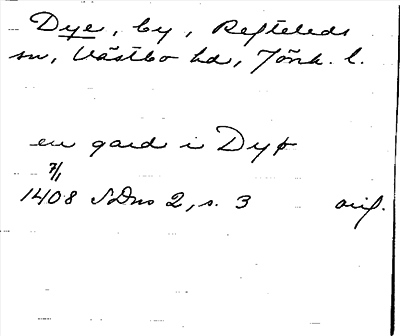 Dye, by, Refteleds
sn, Västbo hd, Jönk. l.
en gard i Dyþ
7/1
1408 SDns 2, s. 3 orig.